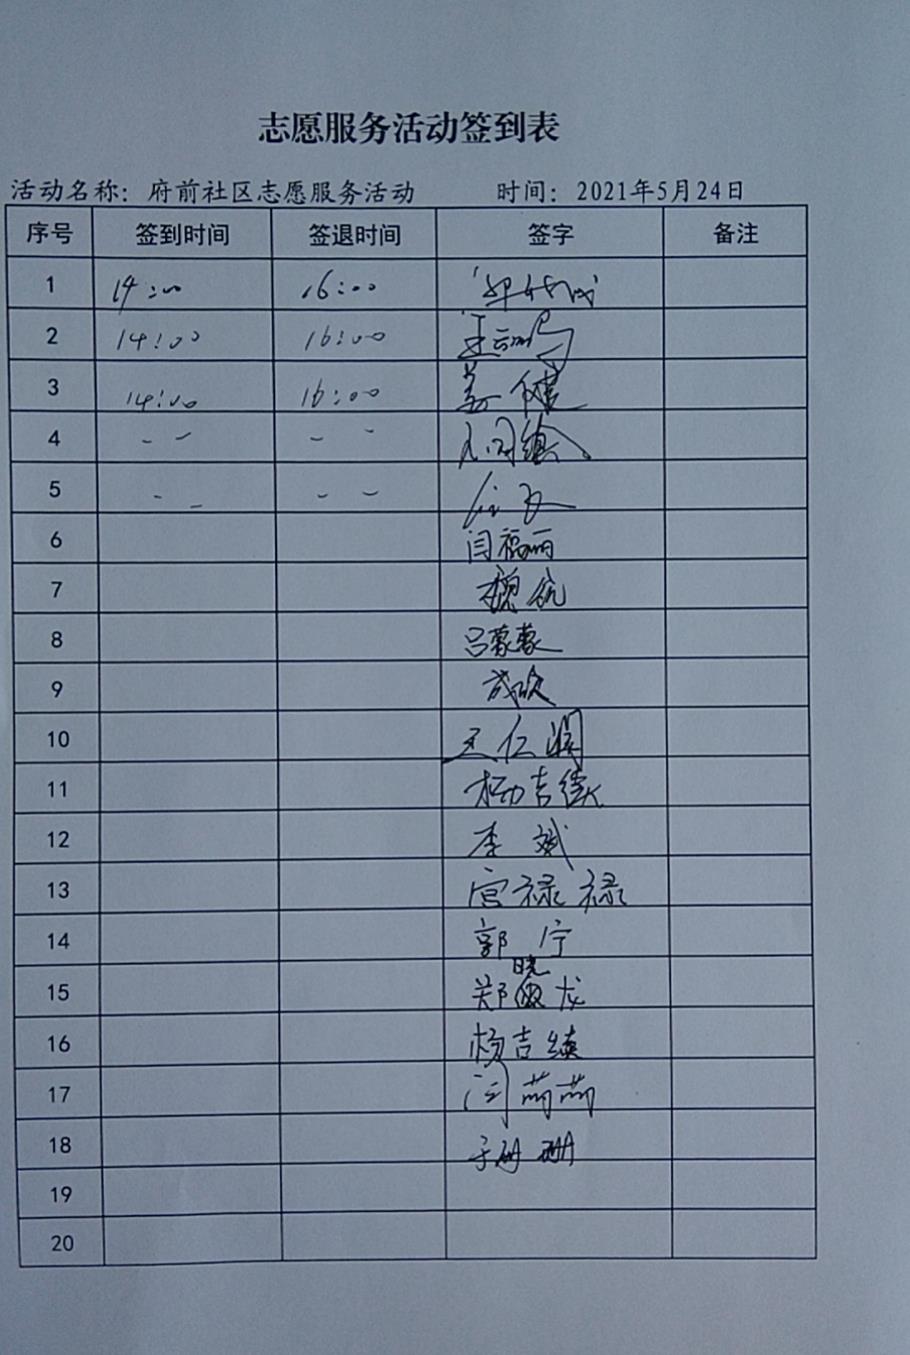 志愿服务活动签到表
活动名称：府前社区志愿服务活动 时间：2021年5月24日
序号 签到时间 签退时间 签字 备注
1 14:00 16:00
2 14:00 16:00
3 14:00 16:00 姜健
4 - - - -
5 - - - -
6 闫福丽
7 魏
8 吕蒙蒙
9 成欣
10 王仁
11 杨吉
12 李斌
13 宫禄禄
14 郭宁
15 郑晓龙
16 杨吉续
17 闫茜茜
18 于珊珊
19
20